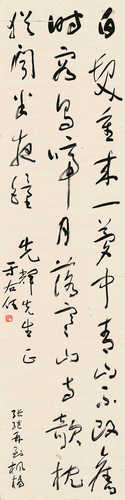 白髮重來一夢中青山不改舊
時容烏啼月落寒山寺欹枕
猶聞半夜鐘
先輝先生正
于右任
張繼再到楓橋